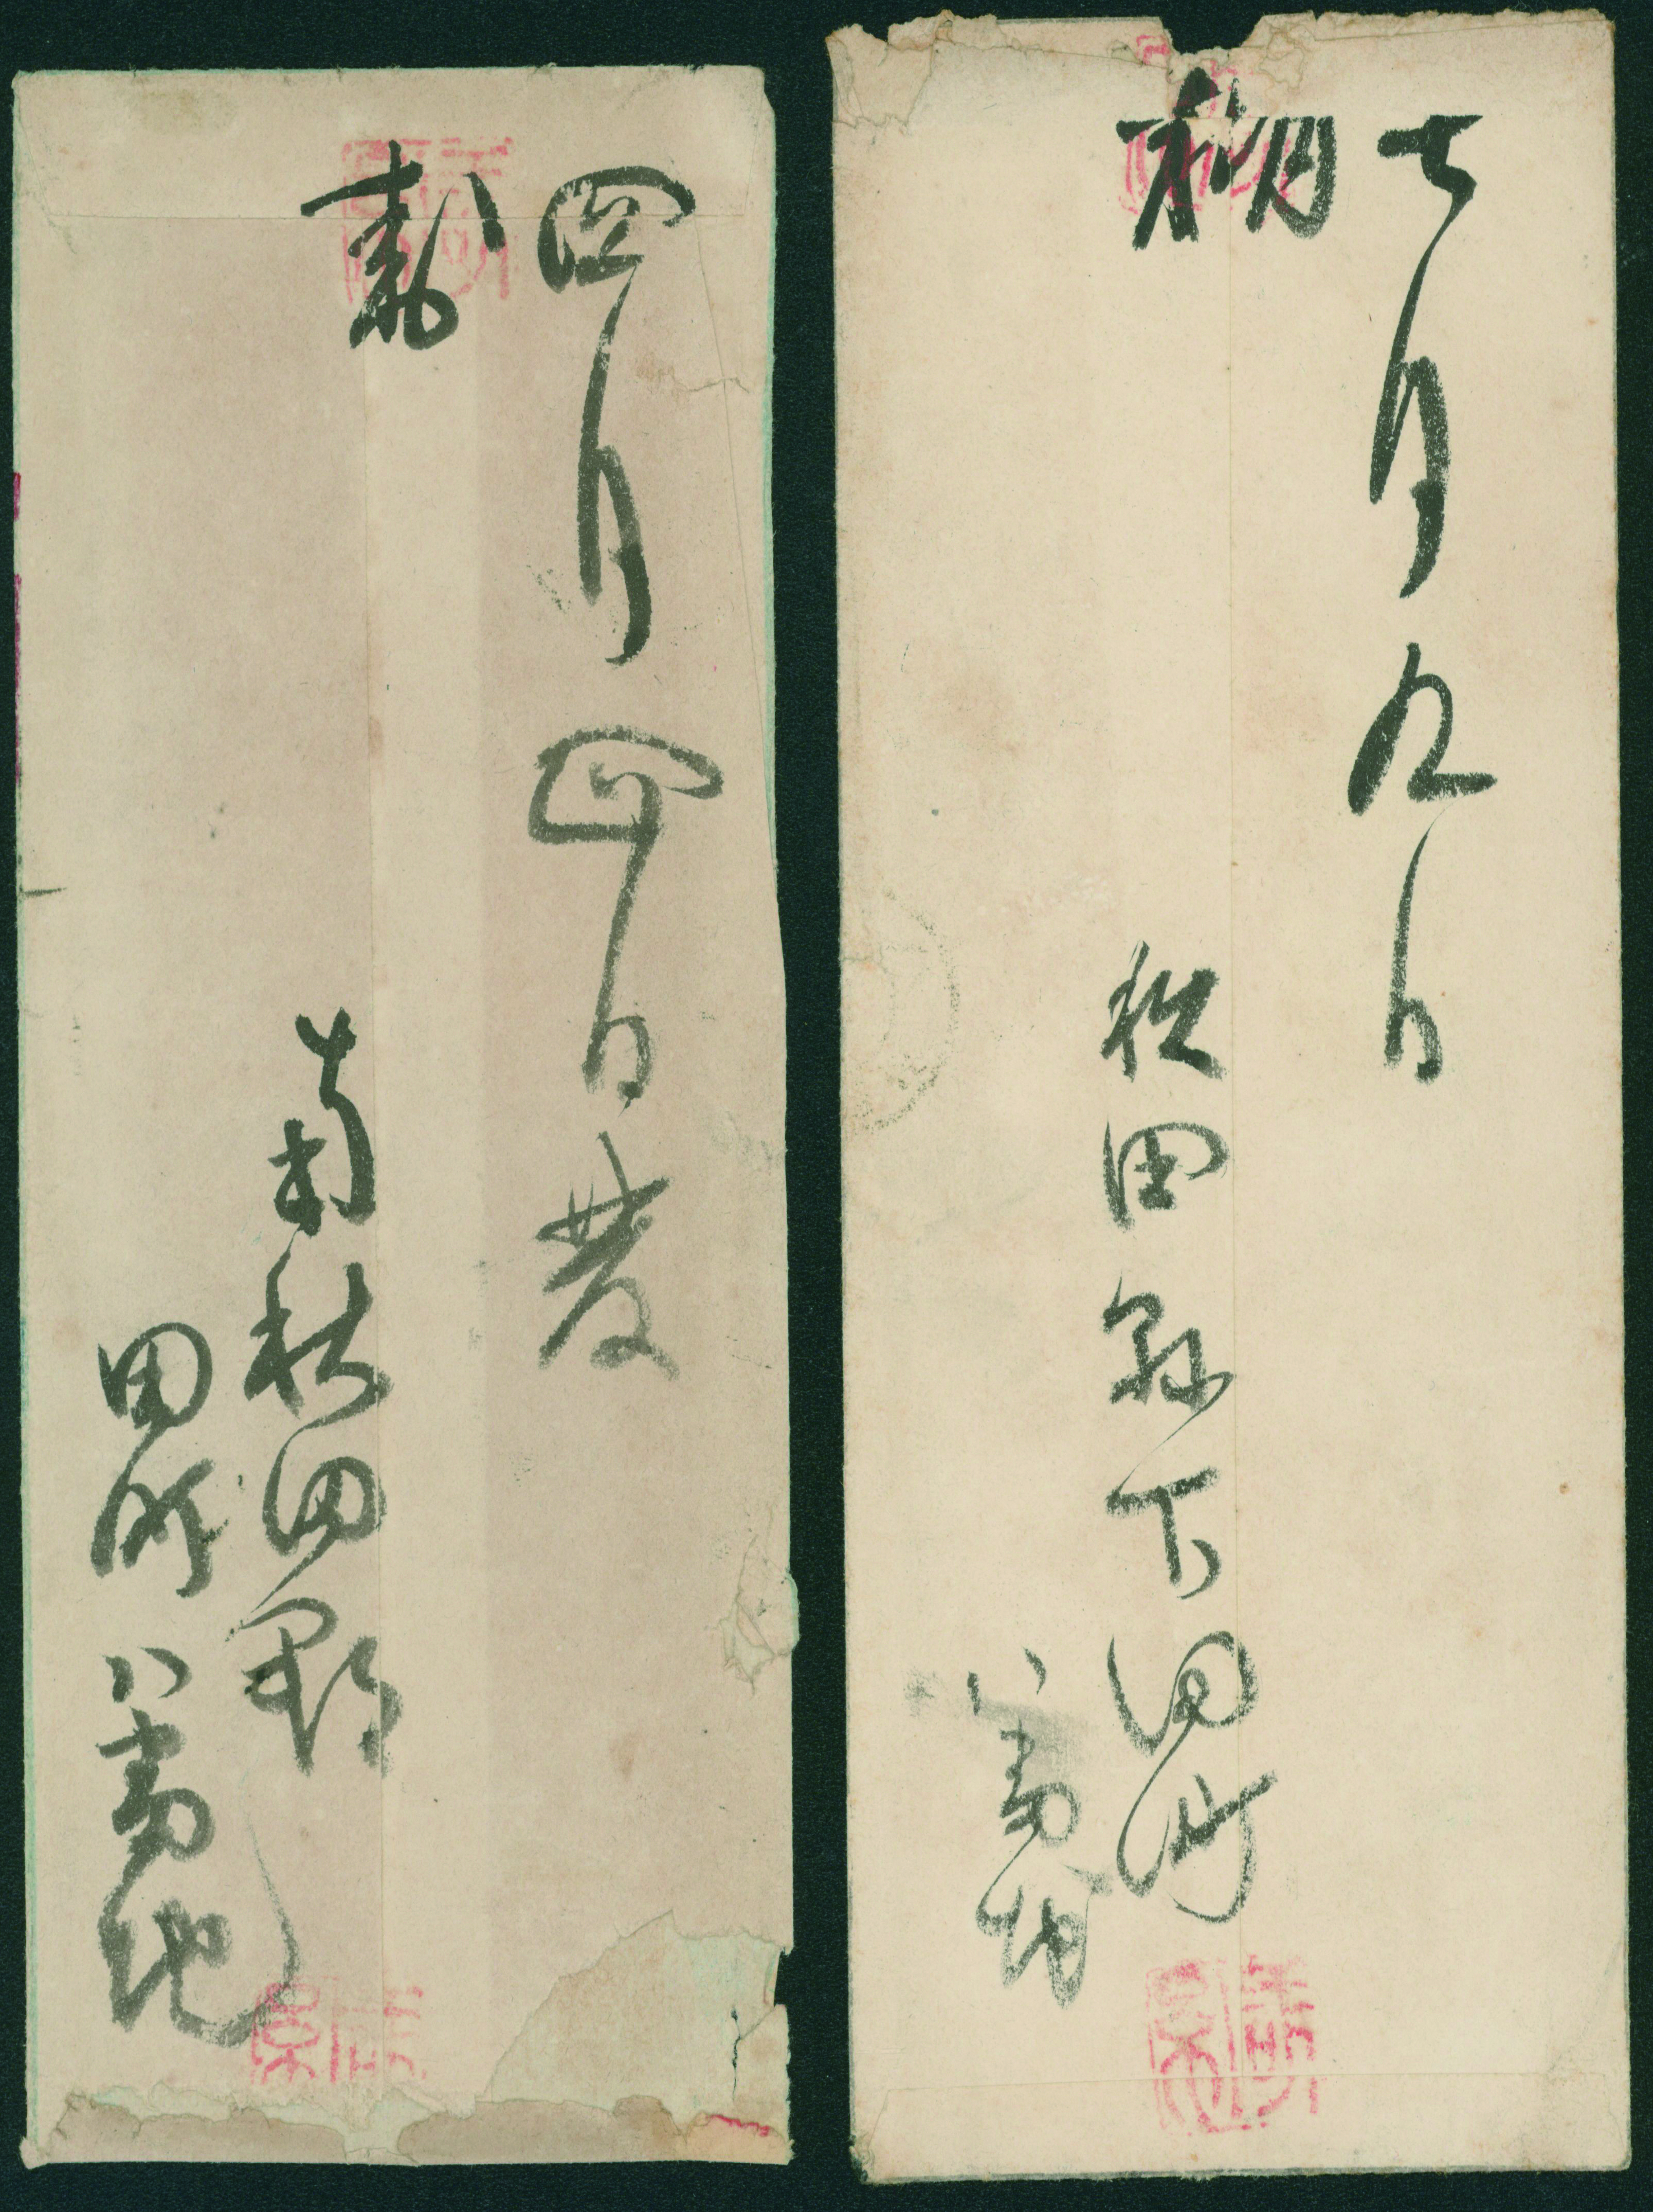 七月九日
秋田縣下田町
八番地
四月四日發
南秋田郡
田町八番地